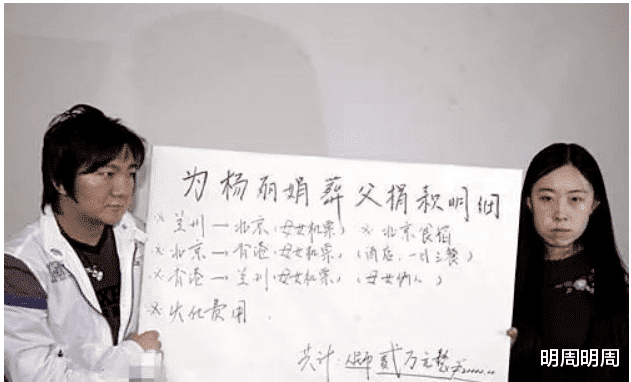 为杨丽娟葬父捐款明细
※ 兰州—北京(母女机票) ※ 北京食宿
※ 北京→香港(母女机票)(酒店、一日三餐)
※ 香港→兰州(母女机票)(母女俩人)
※ 火化费用.
共计:人民币贰万元整
明周明周